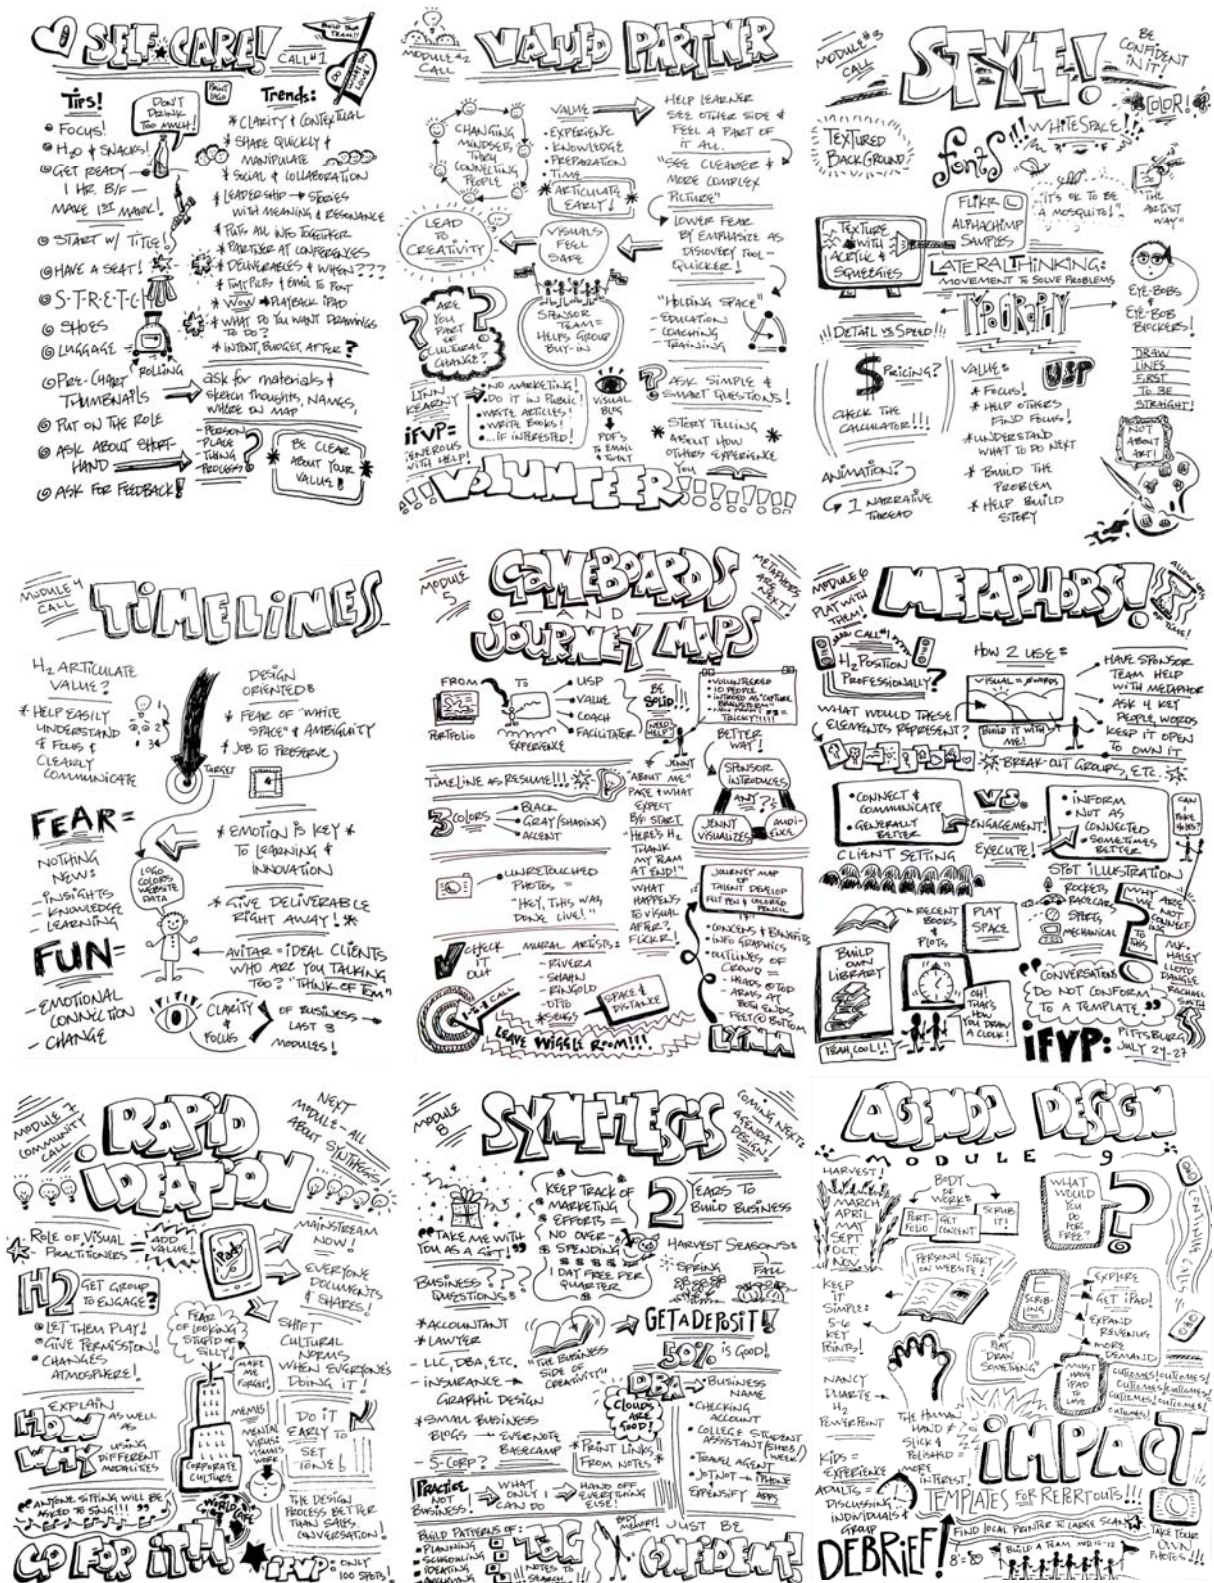 SELF-CARE!
CALL #1
BUILD YOUR TEAM!!
DO WHAT YOU LOVE!
PRINT LOGO
Tips!
FOCUS!
H2O & SNACKS!
GET READY
1 HR. B/F —
MAKE 1ST MARK!
START W/ TITLE!
HAVE A SEAT!
S-T-R-E-T-C-H
SHOES
LUGGAGE
ROLLING
PRE-CHART
THUMBNAILS
PUT ON THE ROLE
ASK ABOUT SHORT-
HAND
ASK FOR FEEDBACK!
DON'T
DRINK
TOO MUCH!
Trends:
* CLARITY & CONTEXTUAL
* SHARE QUICKLY &
MANIPULATE
* SOCIAL & COLLABORATION
* LEADERSHIP → STORIES
WITH MEANING & RESONANCE
* PUTS ALL INFO TOGETHER
* PARTNER AT CONFERENCES
* DELIVERABLES & WHEN???
* WOW → PLAYBACK IPAD
* WHAT DO YOU WANT DRAWINGS
TO DO?
* INTENT, BUDGET, AFTER?
ask for materials &
sketch thoughts, NAMES,
WHERE ON MAP
- PERSON
- PLACE
- THING
- PROCESS
?
BE CLEAR
ABOUT YOUR
VALUE!
MODULE #2
CALL
VALUED PARTNER
CHANGING
MINDSETS
THRU
CONNECTING
PEOPLE
VALUE
• EXPERIENCE
• KNOWLEDGE
• PREPARATION
• TIME
* ARTICULATE
EARLY!
HELP LEARNER
SEE OTHER SIDE &
FEEL A PART OF
IT ALL.
"SEE CLEARER &
MORE COMPLEX
PICTURE"
LOWER FEAR
BY EMPHASIZE AS
DISCOVERY TOOL —
QUICKER!
LEAD
TO
CREATIVITY
VISUALS
FEEL
SAFE
ARE
YOU
PART
OF
CULTURAL
CHANGE?
SPONSOR
TEAM =
HELPS GROUP
BUY-IN
"HOLDING SPACE"
- EDUCATION
- COACHING
- TRAINING
LYNN
KEARNY
iFVP =
GENEROUS
WITH HELP!
• NO MARKETING!
• DO IT IN PUBLIC!
• WRITE ARTICLES!
• WRITE BOOKS!
• ...IF INTERESTED!
VISUAL
BLOG
PDF'S
TO EMAIL
& TWEET
? ASK SIMPLE &
SMART QUESTIONS!
* STORY TELLING *
ABOUT HOW
OTHERS EXPERIENCE
YOU
VOLUNTEER!!!!!!
MODULE #3
CALL
STYLE!
BE
CONFIDENT
IN IT!
COLOR!
TEXTURED
BACKGROUND
fonts
!!WHITE SPACE!!
FLIKR
ALPHACHIMP
SAMPLES
"IT'S OK TO BE
A MOSQUITO!"
"THE
ARTIST
WAY"
TEXTURE
WITH
ACRYLIC &
SQUEEGIES
LATERAL THINKING:
MOVEMENT TO SOLVE PROBLEMS
TYPOGRAPHY
EYE-BOBS
&
EYE-BOB
BLOCKERS!
!!DETAIL VS SPEED!!!
$ PRICING?
CHECK THE
CALCULATOR!!!
ANIMATION?
1 NARRATIVE
THREAD
VALUE:
* FOCUS!
* HELP OTHERS
FIND FOCUS!
* UNDERSTAND
WHAT TO DO NEXT
* BUILD THE
PROBLEM
* HELP BUILD
STORY
USP
DRAW
LINES
FIRST
TO BE
STRAIGHT!
NOT
ABOUT
ART!
MODULE 4
CALL
TIMELINES
H2 ARTICULATE
VALUE?
* HELP EASILY
UNDERSTAND
& FOCUS &
CLEARLY
COMMUNICATE
TARGET
DESIGN
ORIENTED:
* FEAR OF "WHITE
SPACE" & AMBIGUITY
* JOB TO PRESERVE
FEAR =
NOTHING
NEW:
- INSIGHTS
- KNOWLEDGE
- LEARNING
* EMOTION IS KEY *
TO LEARNING &
INNOVATION
LOGO
COLORS
WEBSITE
DATA
* GIVE DELIVERABLE
RIGHT AWAY! *
FUN =
- EMOTIONAL
CONNECTION
- CHANGE
AVITAR = IDEAL CLIENTS
WHO ARE YOU TALKING
TOO? "THINK OF TOM"
CLARITY
&
FOCUS
OF BUSINESS
LAST 3
MODULES!
MODULE
5
GAMEBOARDS
AND
JOURNEY MAPS
METAPHORS
ARE
NEXT!
FROM
PORTFOLIO
TO
EXPERIENCE
USP
VALUE
COACH
FACILITATOR
BE
SOLID!!!
NEED
HELP?
JENNY
• VOLUNTEERED
• 10 PEOPLE
TRICKY!!!!!
BETTER
WAY!
TIMELINE AS RESUME!!!
"ABOUT ME"
PAGE & WHAT
EXPECT
B/F START
"HERE'S H2
THANK
MY TEAM
AT END!"
WHAT
HAPPENS
TO VISUAL
AFTER?
FLICKR!
SPONSOR
INTRODUCES
ANY ?'S
JENNY
VISUALIZES
AUDI-
ENCE
3 COLORS
BLACK
GRAY (SHADING)
ACCENT
UNRETOUCHED
PHOTOS =
"HEY, THIS WAS
DONE LIVE!"
JOURNEY MAP
OF
TALENT DEVELOP
FELT PEN & COLORED
PENCIL
• CONCERNS & BENEFITS
• INFO GRAPHICS
• OUTLINES OF
CROWD =
- HEADS @ TOP
- ARMS AT
BOTH ENDS
- FEET @ BOTTOM
CHECK
IT
OUT
MURAL ARTISTS:
- RIVERA
- SHAHN
- RINGOLD
- DITTO
1-1 CALL
SPACE &
DISTANCE
LEAVE WIGGLE ROOM!!!
LYNN
MODULE 6
PLAY WITH
THEM!
METAPHORS!
ALLOW LOTS
OF TIME!
CALL #1
H2 POSITION
PROFESSIONALLY?
HOW 2 USE =
VISUAL = WORDS
BUILD IT WITH
ME!
HAVE SPONSOR
TEAM HELP
WITH METAPHOR
ASK 4 KEY
PEOPLE WORDS
KEEP IT OPEN
TO OWN IT
WHAT WOULD THESE
ELEMENTS REPRESENT?
BREAK-OUT GROUPS, ETC.
• CONNECT &
COMMUNICATE
• GENERALLY
BETTER
VS.
ENGAGEMENT!
EXECUTE!
• INFORM
• NOT AS
CONNECTED
• SOMETIMES
BETTER
CLIENT SETTING
SPOT ILLUSTRATION
ROCKETS
RACECARS
SPORTS
MECHANICAL
RECENT
BOOKS
&
PLOTS
PLAY
SPACE
WHY ARE
WE NOT
CONNECT
ING
TO
THIS
?
BUILD
OWN
LIBRARY
OH!
THAT'S
HOW
YOU DRAW
A CLOCK!
YEAH, COOL!!
"CONVERSATIONS
DO NOT CONFORM
TO A TEMPLATE."
M.K.
HALEY
LLOYD
DANGLE
RACHAEL
SMITH
iFVP:
PITTSBURG
JULY 24-27
MODULE 7
COMMUNITY
CALL
RAPID
IDEATION
NEXT
MODULE — ALL
ABOUT SYNTHESIS!
ROLE OF VISUAL
PRACTITIONERS
=
ADD
VALUE!
iPad
MAINSTREAM
NOW!
EVERYONE
DOCUMENTS
& SHARES!
H2 GET GROUP
TO ENGAGE?
LET THEM PLAY!
GIVE PERMISSION!
CHANGES
ATMOSPHERE!
FEAR
OF LOOKING
STUPID OR
SILLY!
SHIFT
CULTURAL
NORMS
WHEN EVERYONE'S
DOING IT!
MAKE
ME
FORGET!
EXPLAIN
HOW AS WELL
AS
WHY USING
DIFFERENT
MODALITIES
CORPORATE
CULTURE
MEMES
MENTAL
VIRUS:
VISUALS
WORK
DO IT
EARLY TO
SET
TONE!
"ANYONE SITTING WILL BE
ASKED TO SING!!!"
WORLD
CAFE
THE DESIGN
PROCESS BETTER
THAN SALES
CONVERSATION!
GO FOR IT!!!
iFVP: ONLY
100 SPOTS!
MODULE
8
SYNTHESIS
COMING NEXT:
AGENDA
DESIGN!
"TAKE ME WITH
YOU AS A GIFT!"
KEEP TRACK OF
MARKETING
EFFORTS =
NO OVER-
SPENDING
$ $ $ $ $ $
1 DAY FREE PER
QUARTER
2 YEARS TO
BUILD BUSINESS
HARVEST SEASONS:
SPRING
FALL
BUSINESS ???
QUESTIONS:
* ACCOUNTANT
* LAWYER
- LLC, DBA, ETC.
- INSURANCE →
GRAPHIC DESIGN
* SMALL BUSINESS
BLOGS → EVERNOTE
BASECAMP
- S-CORP?
"THE BUSINESS
SIDE OF
CREATIVITY"
GET A DEPOSIT!
50% IS GOOD!
CLOUDS
ARE
GOOD!
DBA → BUSINESS
NAME
• CHECKING
ACCOUNT
• COLLEGE STUDENT
ASSISTANT (5HRS/
WEEK)
• TRAVEL AGENT
• JOTNOT → iPHONE
EXPENSIFY APPS
* PRINT LINKS
FROM NOTES *
PRACTICE
NOT
BUSINESS!
WHAT
ONLY I
CAN DO
HAND OFF
EVERYTHING
ELSE!
BUILD PATTERNS OF:
• PLANNING
• SCHEDULING
• IDEATING
• ARCHIVING
TAG
NOTES TO
SEARCH
BODY
MEMORY!
JUST BE
CONFIDENT!
AGENDA DESIGN
MODULE 9
HARVEST!
MARCH
APRIL
MAY
SEPT
OCT.
NOV.
BODY
OF
WORK:
PORT-
FOLIO
GET
CONSENT
SCRUB
IT!
WHAT
WOULD
YOU
DO
FOR
FREE?
?
CONTINUING CALLS
PERSONAL STORY
ON WEBSITE!
KEEP
IT
SIMPLE:
5-6
KEY
POINTS!
F
SCRIB-
ING
EXPLORE
GET iPAD!
EXPAND
REVENUE
MORE
DEMAND
"PLAY
DRAW
SOMETHING"
MUST
HAVE
iPAD
TO
LOVE
OUTCOMES! OUTCOMES!
OUTCOMES! OUTCOMES!
OUTCOMES! OUTCOMES!
OUTCOMES!
NANCY
DUARTE
H2
POWERPOINT
THE HUMAN
HAND ≠
SLICK &
POLISHED =
MORE
INTEREST!
IMPACT
KIDS =
EXPERIENCE
ADULTS =
DISCUSSING
INDIVIDUALS &
GROUP
TEMPLATES FOR REPORTOUTS!!!
FIND LOCAL PRINTER TO LARGE SCAN
DEBRIEF!
BUILD A TEAM
TAKE YOUR
OWN
PHOTOS!!!